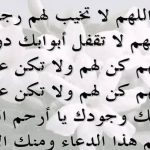 اللهم لا تخيب لهم رج
هم لا تقفل أبوابك دو
هم كن لهم ولا تكن ع
هم كن لهم ولا تكن ع
ك وجودك يا أرحم ا
م هذا الدعاء ومنك ال